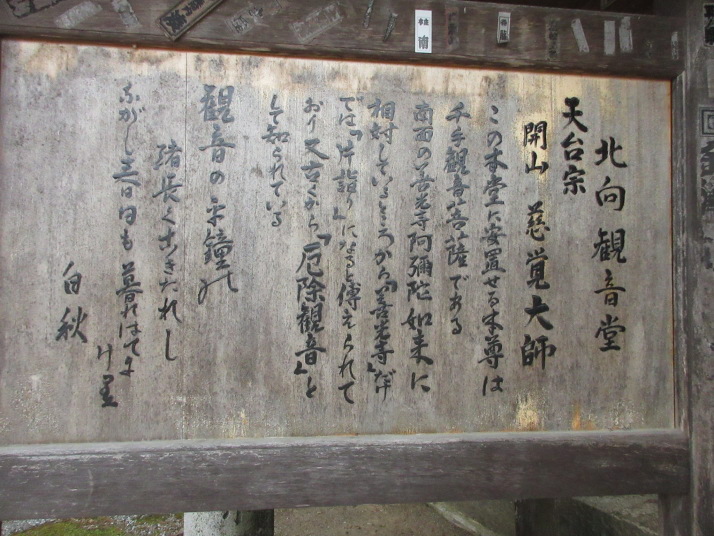 北向観音堂
天台宗
開山 慈覚大師
この本堂に安置せる本尊は
千手観音菩薩である
南面の善光寺阿彌陀如来に
相対しているところから「善光寺」だけ
では「片詣り」になると傳えられて
おり又古くから「厄除観音」と
して知られている
観音の
鐘の
緒長く
ながし 春日も 暮れはてに
けり
白秋